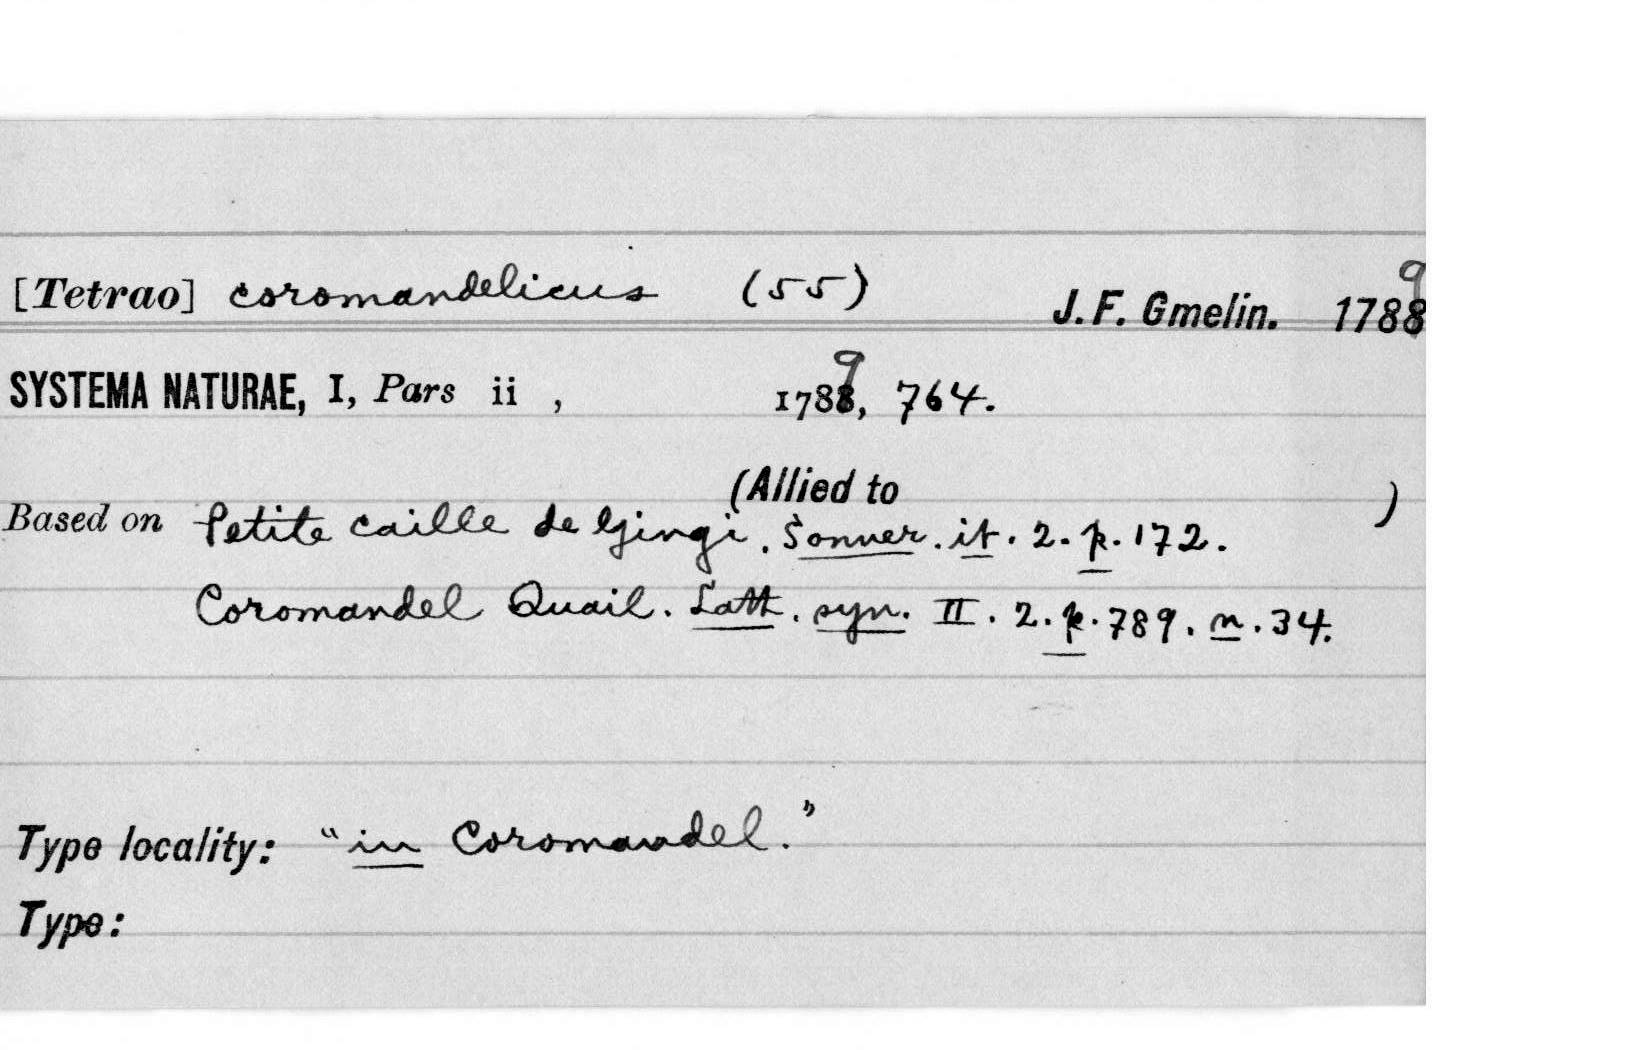 [Tetrao] coromandelicus (55) J. F. Gmelin. 1789
SYSTEMA NATURAE, I, Pars ii , 1789, 764.
(Allied to )
Based on Petite caille de Gingi. Sonner. it. 2. p. 172.
Coromandel Quail. Lath. syn. II. 2. p. 789. n. 34.
Type locality: "in Coromandel."
Type: